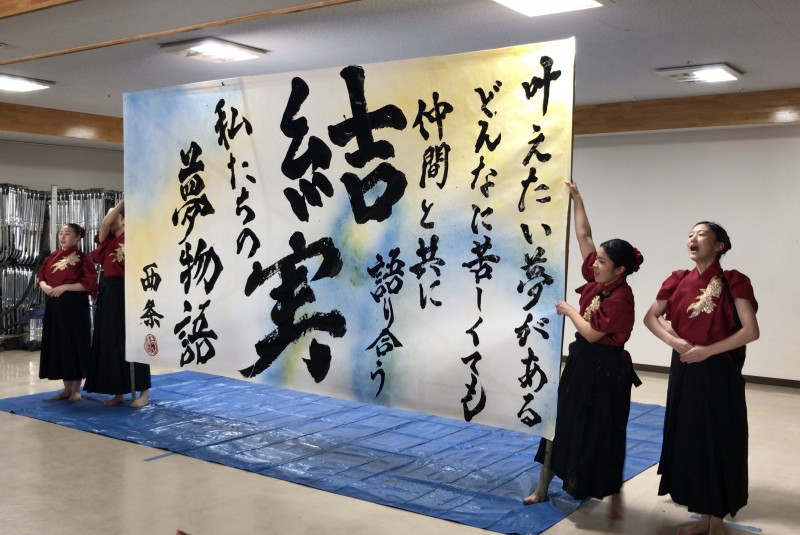 叶えたい夢がある
どんなに苦しくても
仲間と共に
語り合う
結実
私たちの
夢物語
西条